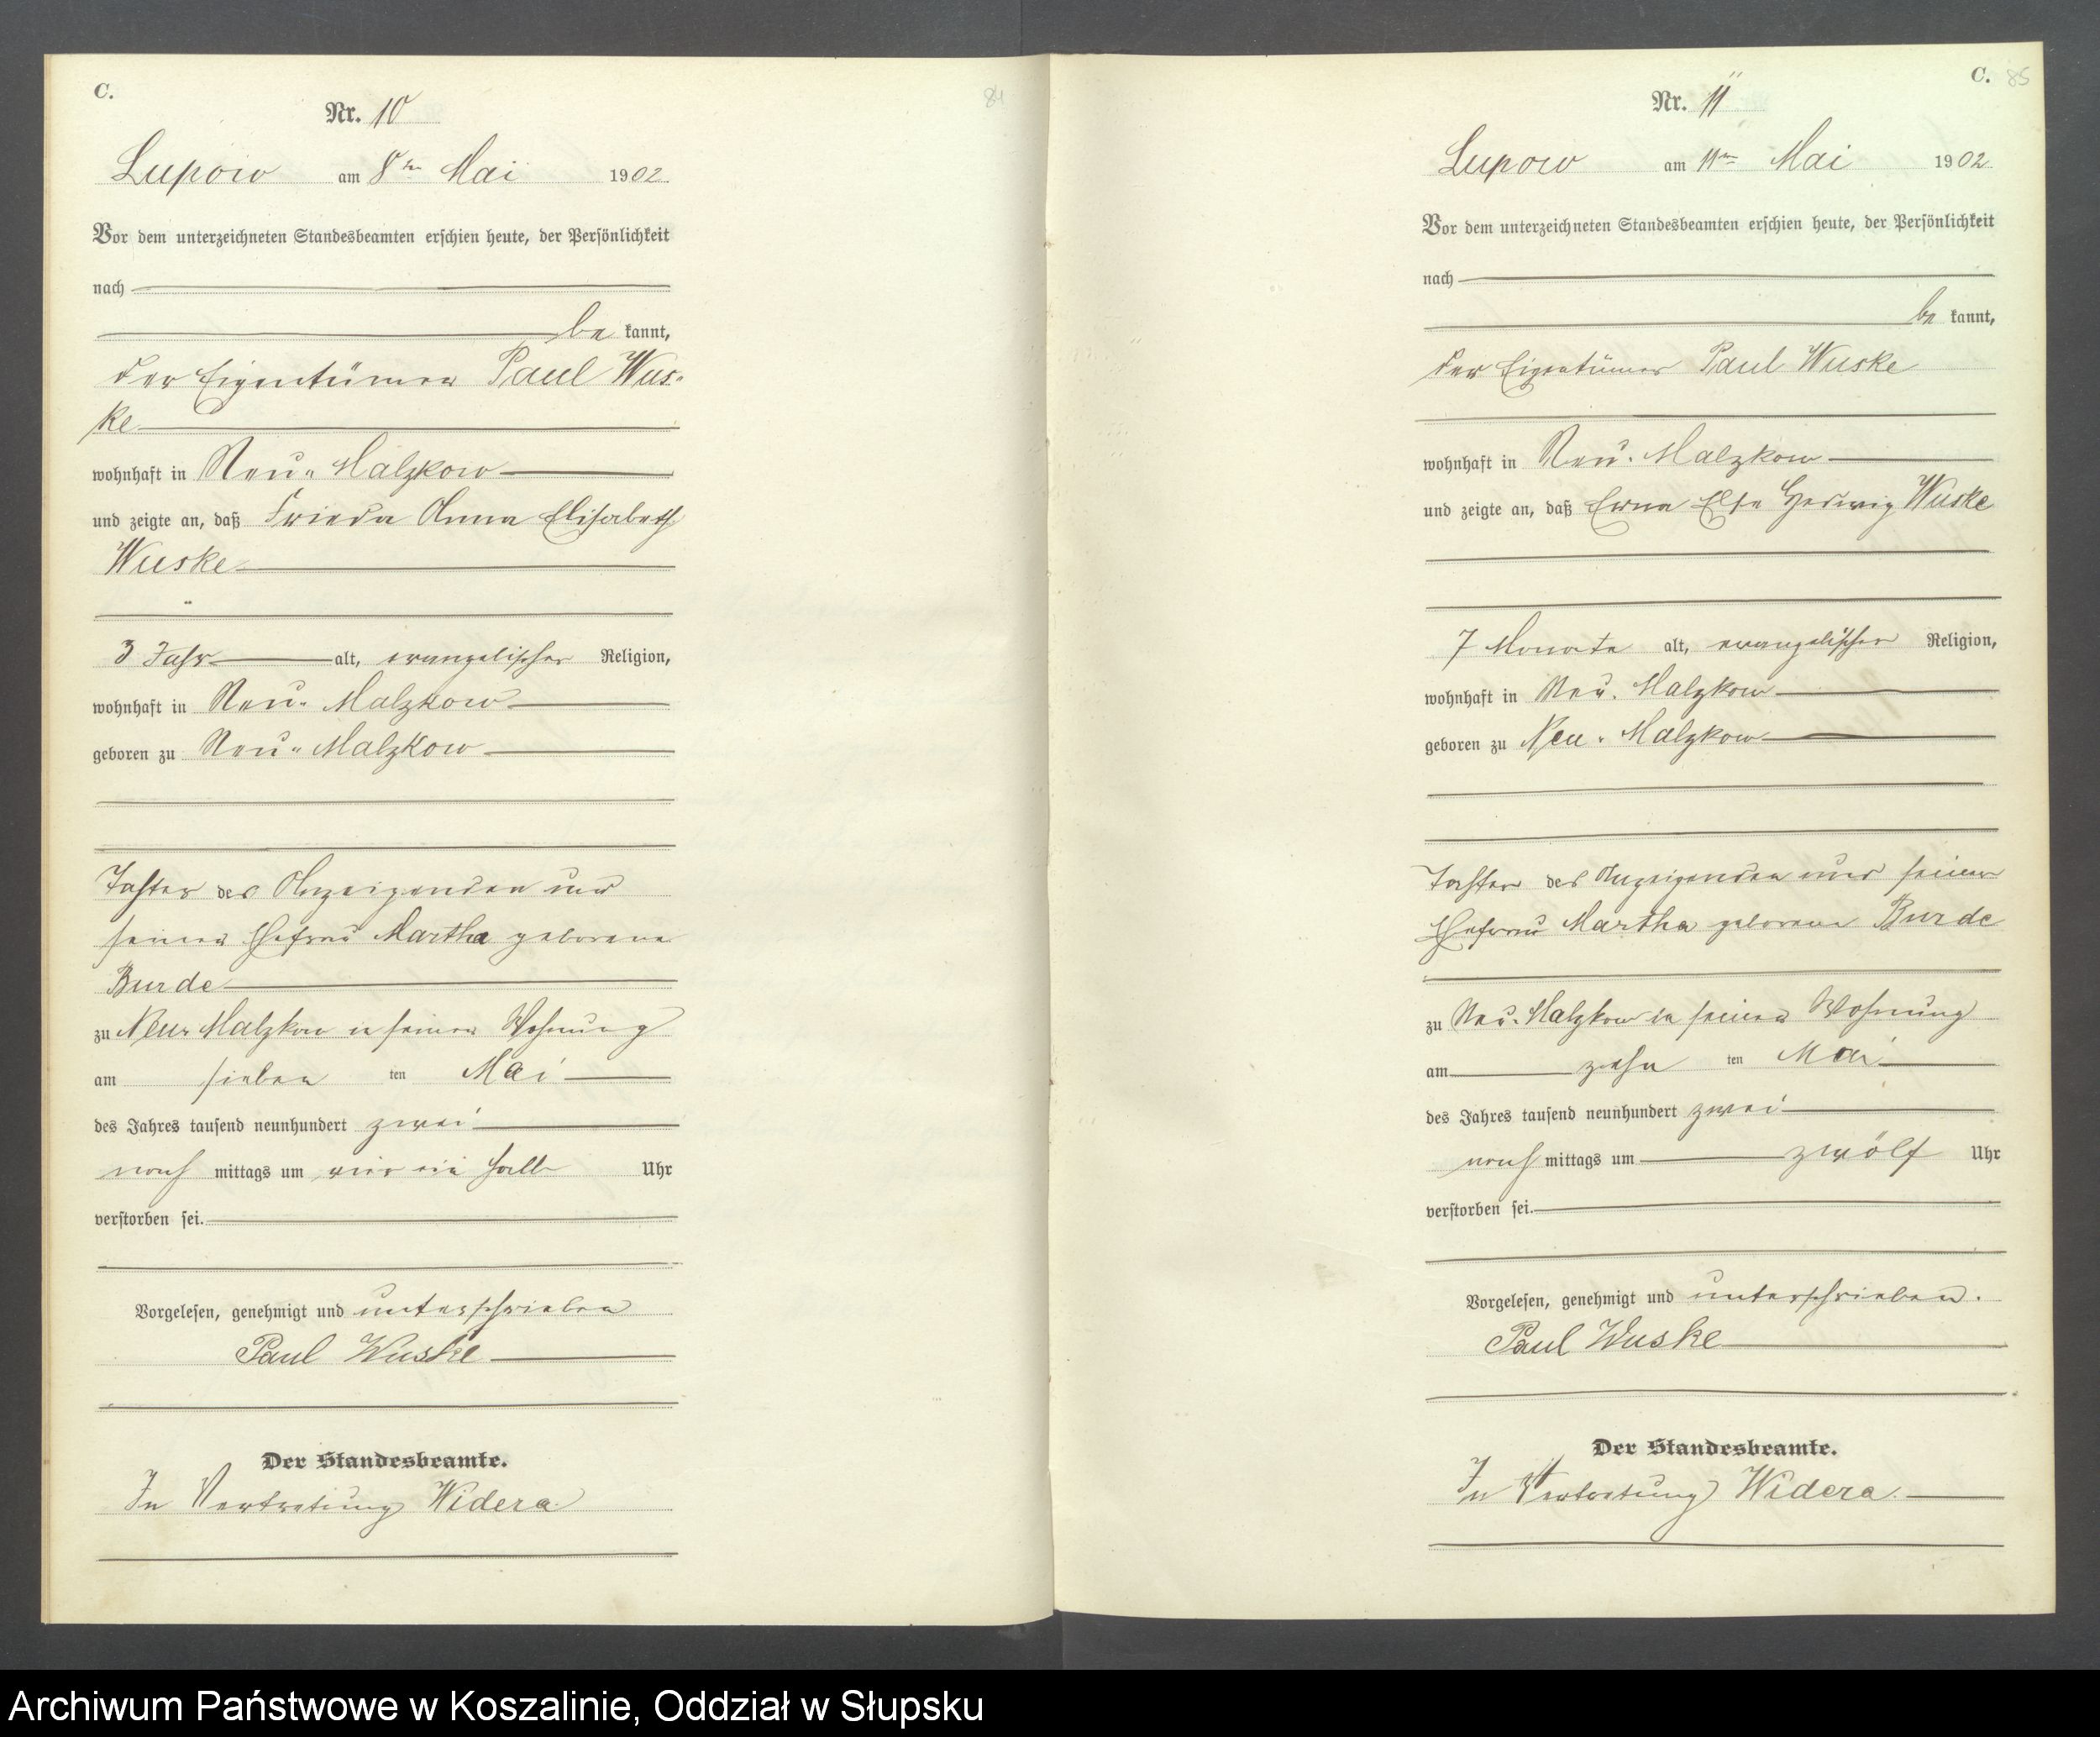 C.
84
Nr. 10
Lupow am 8ten Mai 1902.
Vor dem unterzeichneten Standesbeamten erschien heute, der Persönlichkeit
nach
be kannt,
der Eigentümer Paul Wus-
ke
wohnhaft in Neu-Malzkow
und zeigte an, daß Frieda Anna Elisabeth
Wuske
3 Jahr alt, evangelischer Religion,
wohnhaft in Neu-Malzkow
geboren zu Neu-Malzkow
Tochter des Anzeigenden und
seiner Ehefrau Martha geborene
Burde
zu Neu-Malzkow in seiner Wohnung
am sieben ten Mai
des Jahres tausend neunhundert zwei
nach mittags um vier ein halb Uhr
verstorben sei.
Vorgelesen, genehmigt und unterschrieben
Paul Wuske
Der Standesbeamte.
In Vertretung Widera.
C. 85
Nr. 11
Lupow am 11ten Mai 1902.
Vor dem unterzeichneten Standesbeamten erschien heute, der Persönlichkeit
nach
be kannt,
der Eigentümer Paul Wuske
wohnhaft in Neu-Malzkow
und zeigte an, daß Erna Else Hedwig Wuske
7 Monate alt, evangelischer Religion,
wohnhaft in Neu-Malzkow
geboren zu Neu-Malzkow
Tochter des Anzeigenden und seiner
Ehefrau Martha geborene Burde
zu Neu-Malzkow in seiner Wohnung
am zehn ten Mai
des Jahres tausend neunhundert zwei
nach mittags um zwölf Uhr
verstorben sei.
Vorgelesen, genehmigt und unterschrieben.
Paul Wuske
Der Standesbeamte.
In Vertretung Widera.
Archiwum Państwowe w Koszalinie, Oddział w Słupsku